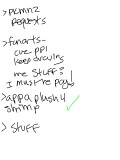 > pkmn2
requests
> funarts-
cuz ppl
keep drawing
me stuff?
I must re pay!
> appa plush 4
shrimp
> stuff